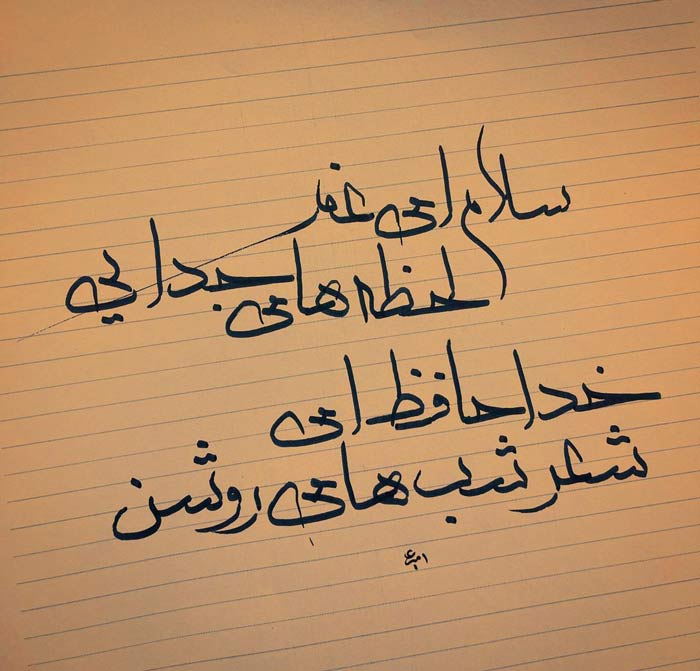 سلام ای غم
لحظه های جدایی
خداحافظ ای
شعر شب های روشن